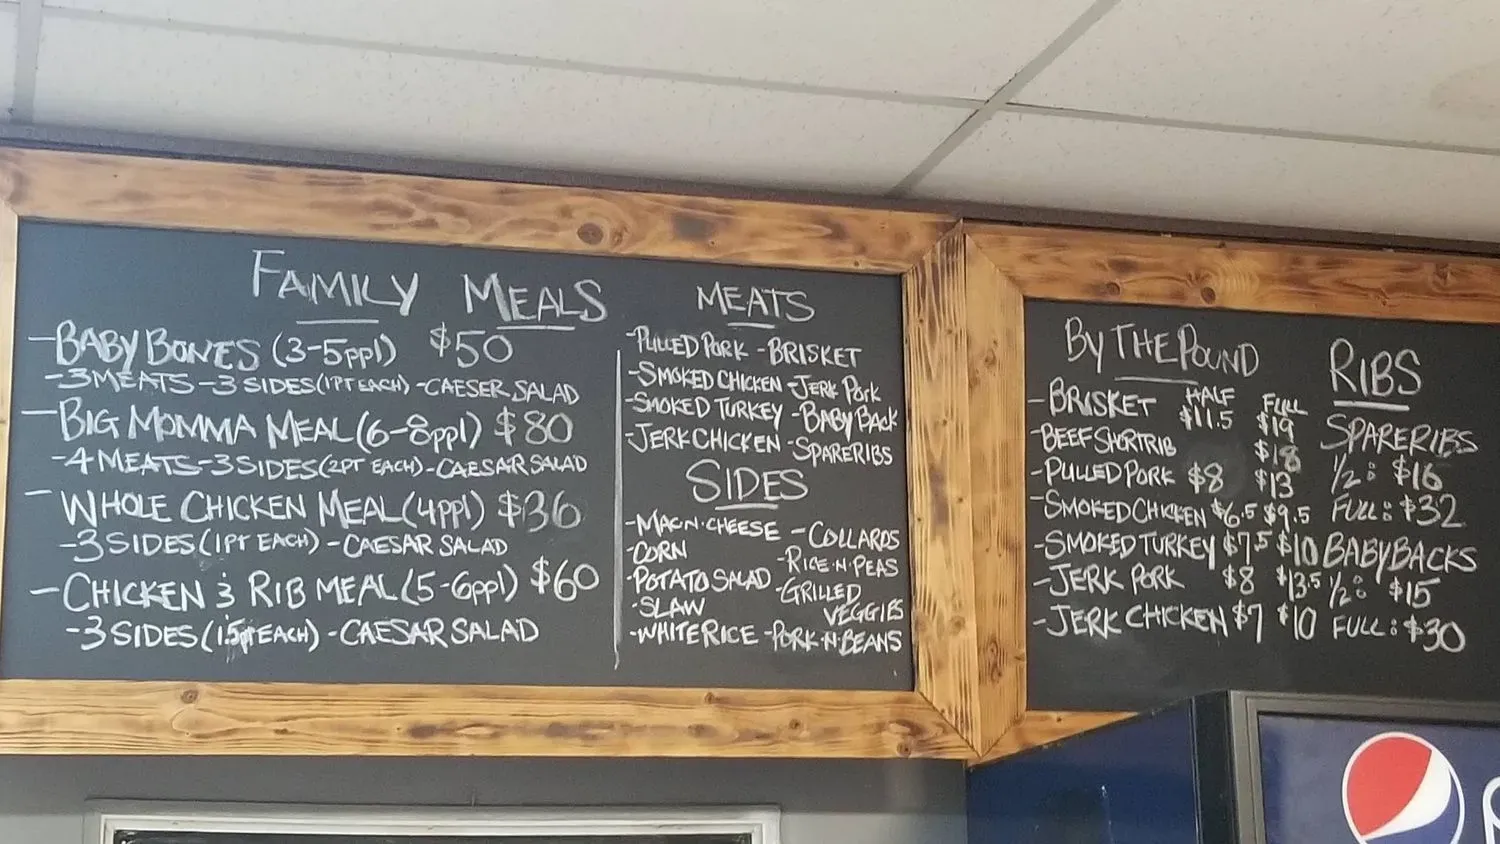 FAMILY MEALS
- BABY BONES (3-5ppl) $50
- 3 MEATS - 3 SIDES (1PT EACH) - CAESER SALAD
- BIG MOMMA MEAL (6-8ppl) $80
- 4 MEATS - 3 SIDES (2PT EACH) - CAESAR SALAD
- WHOLE CHICKEN MEAL (4ppl) $36
- 3 SIDES (1PT EACH) - CAESAR SALAD
- CHICKEN & RIB MEAL (5-6ppl) $60
- 3 SIDES (1.5pt EACH) - CAESAR SALAD
MEATS
- PULLED PORK - BRISKET
- SMOKED CHICKEN - JERK PORK
- SMOKED TURKEY - BABY BACK
- JERK CHICKEN - SPARERIBS
SIDES
- MAC N. CHEESE - COLLARDS
- CORN - RICE-N-PEAS
- POTATO SALAD - GRILLED
- SLAW VEGGIES
- WHITE RICE - PORK-N-BEANS
BY THE POUND
HALF FULL
- BRISKET $11.5 $19
- BEEF SHORTRIB $18
- PULLED PORK $8 $13
- SMOKED CHICKEN $6.5 $9.5
- SMOKED TURKEY $7.5 $10
- JERK PORK $8 $13.5
- JERK CHICKEN $7 $10
RIBS
SPARERIBS
1/2: $16
FULL: $32
BABYBACKS
1/2: $15
FULL: $30